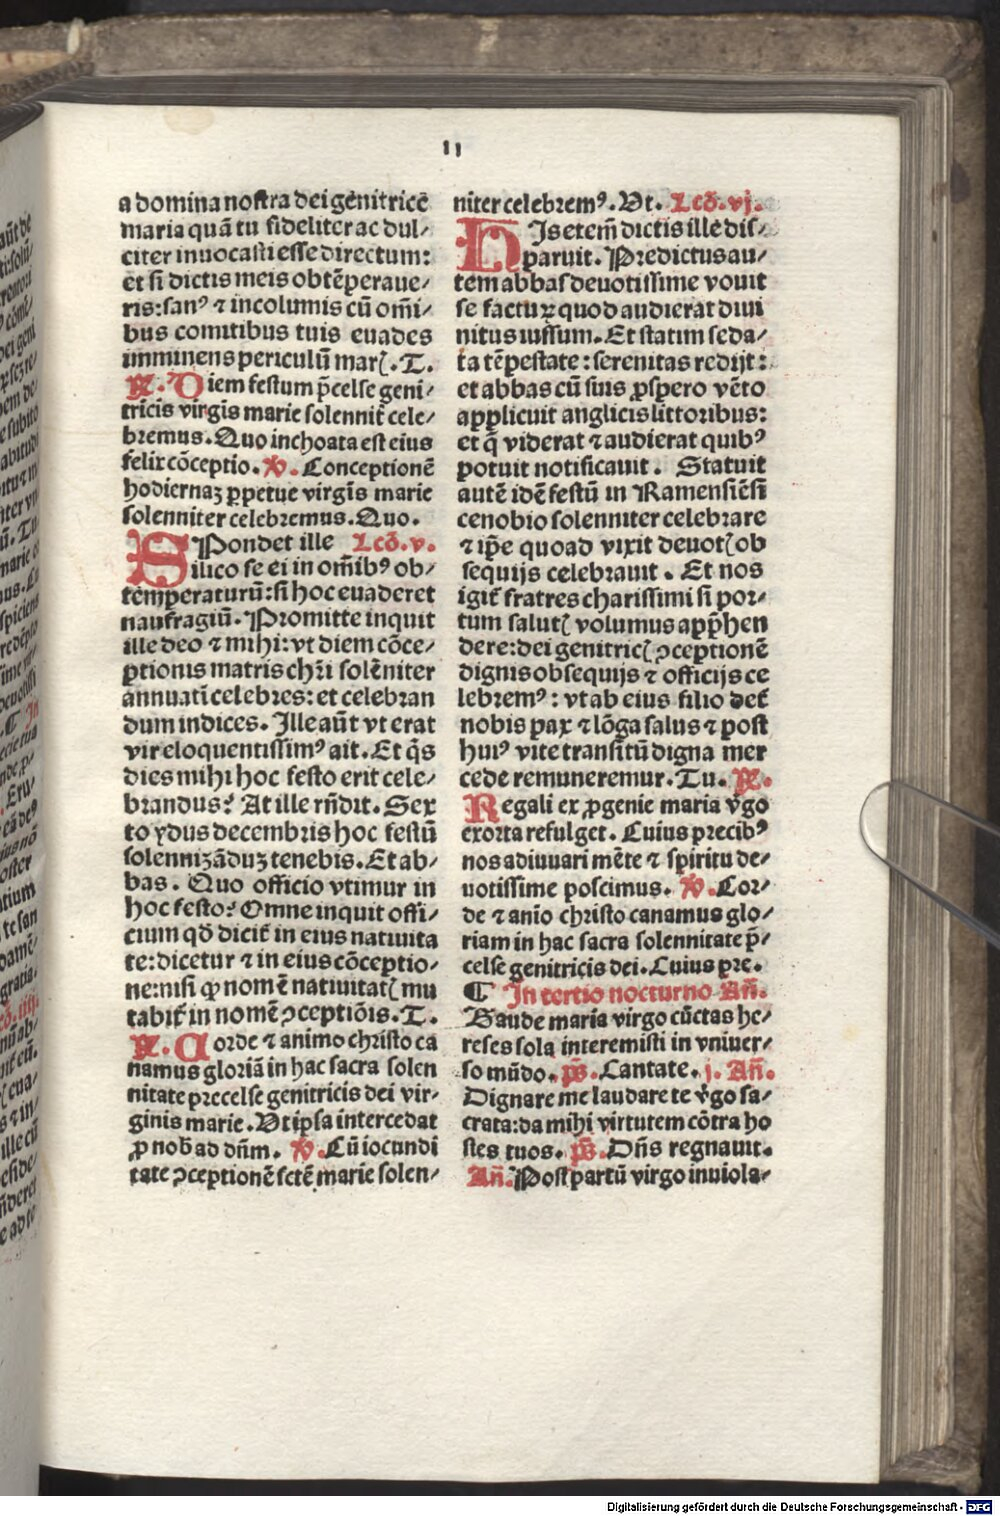 11
a domina nostra dei genitricē
maria quā tu fideliter ac dul⸗
citer inuocasti esse directum:
et si dictis meis obtēperaue⸗
ris: sanꝰ ⁊ incolumis cū om̄i⸗
bus comitibus tuis euades
imminens periculū marꝭ. T.
℟. Diem festum p̄celse geni⸗
tricis virgīs marie solennit̄ cele⸗
bremus. Quo inchoata est eius
felix cōceptio. ℣. Conceptionē
hodiernaꝫ ꝑpetue virgīs marie
solenniter celebremus. Quo.
SPondet ille Lcō. v.
ilico se ei in om̄ibꝰ ob⸗
temperaturū: si hoc euaderet
naufragiū. Promitte inquit
ille deo ⁊ mihi: vt diem cōce⸗
ptionis matris chr̄i solēniter
annuatī celebres: et celebran
dum indices. Ille aūt vt erat
vir eloquentissimꝰ ait. Et q̄s
dies mihi hoc festo erit cele⸗
brandus? At ille rn̄dit. Sex
to ydus decembris hoc festū
solennizāduꝫ tenebis. Et ab⸗
bas. Quo officio vtimur in
hoc festo? Omne inquit offi⸗
cium qd̄ dicit̄ in eius natiuita
te: dicetur ⁊ in eius cōceptio⸗
ne: nisi ꝙ nomē natiuitatꝭ mu
tabit̄ in nomē ꝯceptiōis. T.
℟. Corde ⁊ animo christo ca
namus gloriā in hac sacra solen
nitate precelse genitricis dei vir⸗
ginis marie. Vt ipsa intercedat
ꝓ nob̄ ad dn̄m. ℣. Cū iocundi
tate ꝯceptionē sctē marie solen⸗
niter celebremꝰ. Vt. Lcō. vj.
HIs etem̄ dictis ille dis⸗
paruit. Predictus au⸗
tem abbas deuotissime vouit
se facturꝝ quod audierat diui
nitus iussum. Et statim seda⸗
ta tēpestate: serenitas redijt:
et abbas cū suis ꝓspero vēto
applicuit anglicis littoribus:
et q̄ viderat ⁊ audierat quibꝰ
potuit notificauit. Statuit
autē idē festū in Ramensiēsi
cenobio solenniter celebrare
⁊ ip̄e quoad vixit deuotꝭ ob
sequijs celebrauit. Et nos
igit̄ fratres charissimi si por⸗
tum salutꝭ volumus app̄hen
dere: dei genitricꝭ ꝯceptionē
dignis obsequijs ⁊ officijs ce
lebremꝰ: vt ab eius filio det̄
nobis pax ⁊ lōga salus ⁊ post
huiꝰ vite transitū digna mer
cede remuneremur. Tu. ℟.
Regali ex ꝓgenie maria v̄go
exorta refulget. Cuius precibꝰ
nos adiuuari mēte ⁊ spiritu de⸗
uotissime poscimus. ℣. Cor⸗
de ⁊ anīo christo canamus glo⸗
riam in hac sacra solennitate p̄⸗
celse genitricis dei. Cuius pre.
¶ In tertio nocturno Añ.
Gaude maria virgo cūctas he⸗
reses sola interemisti in vniuer⸗
so mūdo. p̄s. Cantate. j. Añ.
Dignare me laudare te v̄go sa⸗
crata: da mihi virtutem cōtra ho
stes tuos. p̄s. Dn̄s regnauit.
Añ. Post partū virgo inuiola⸗
Digitalisierung gefördert durch die Deutsche Forschungsgemeinschaft - DFG